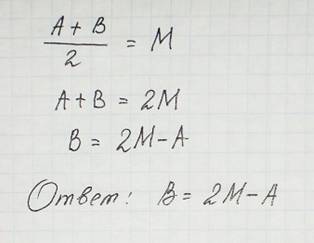 (A + B)/2 = M
A + B = 2M
B = 2M - A
Ответ: B = 2M - A